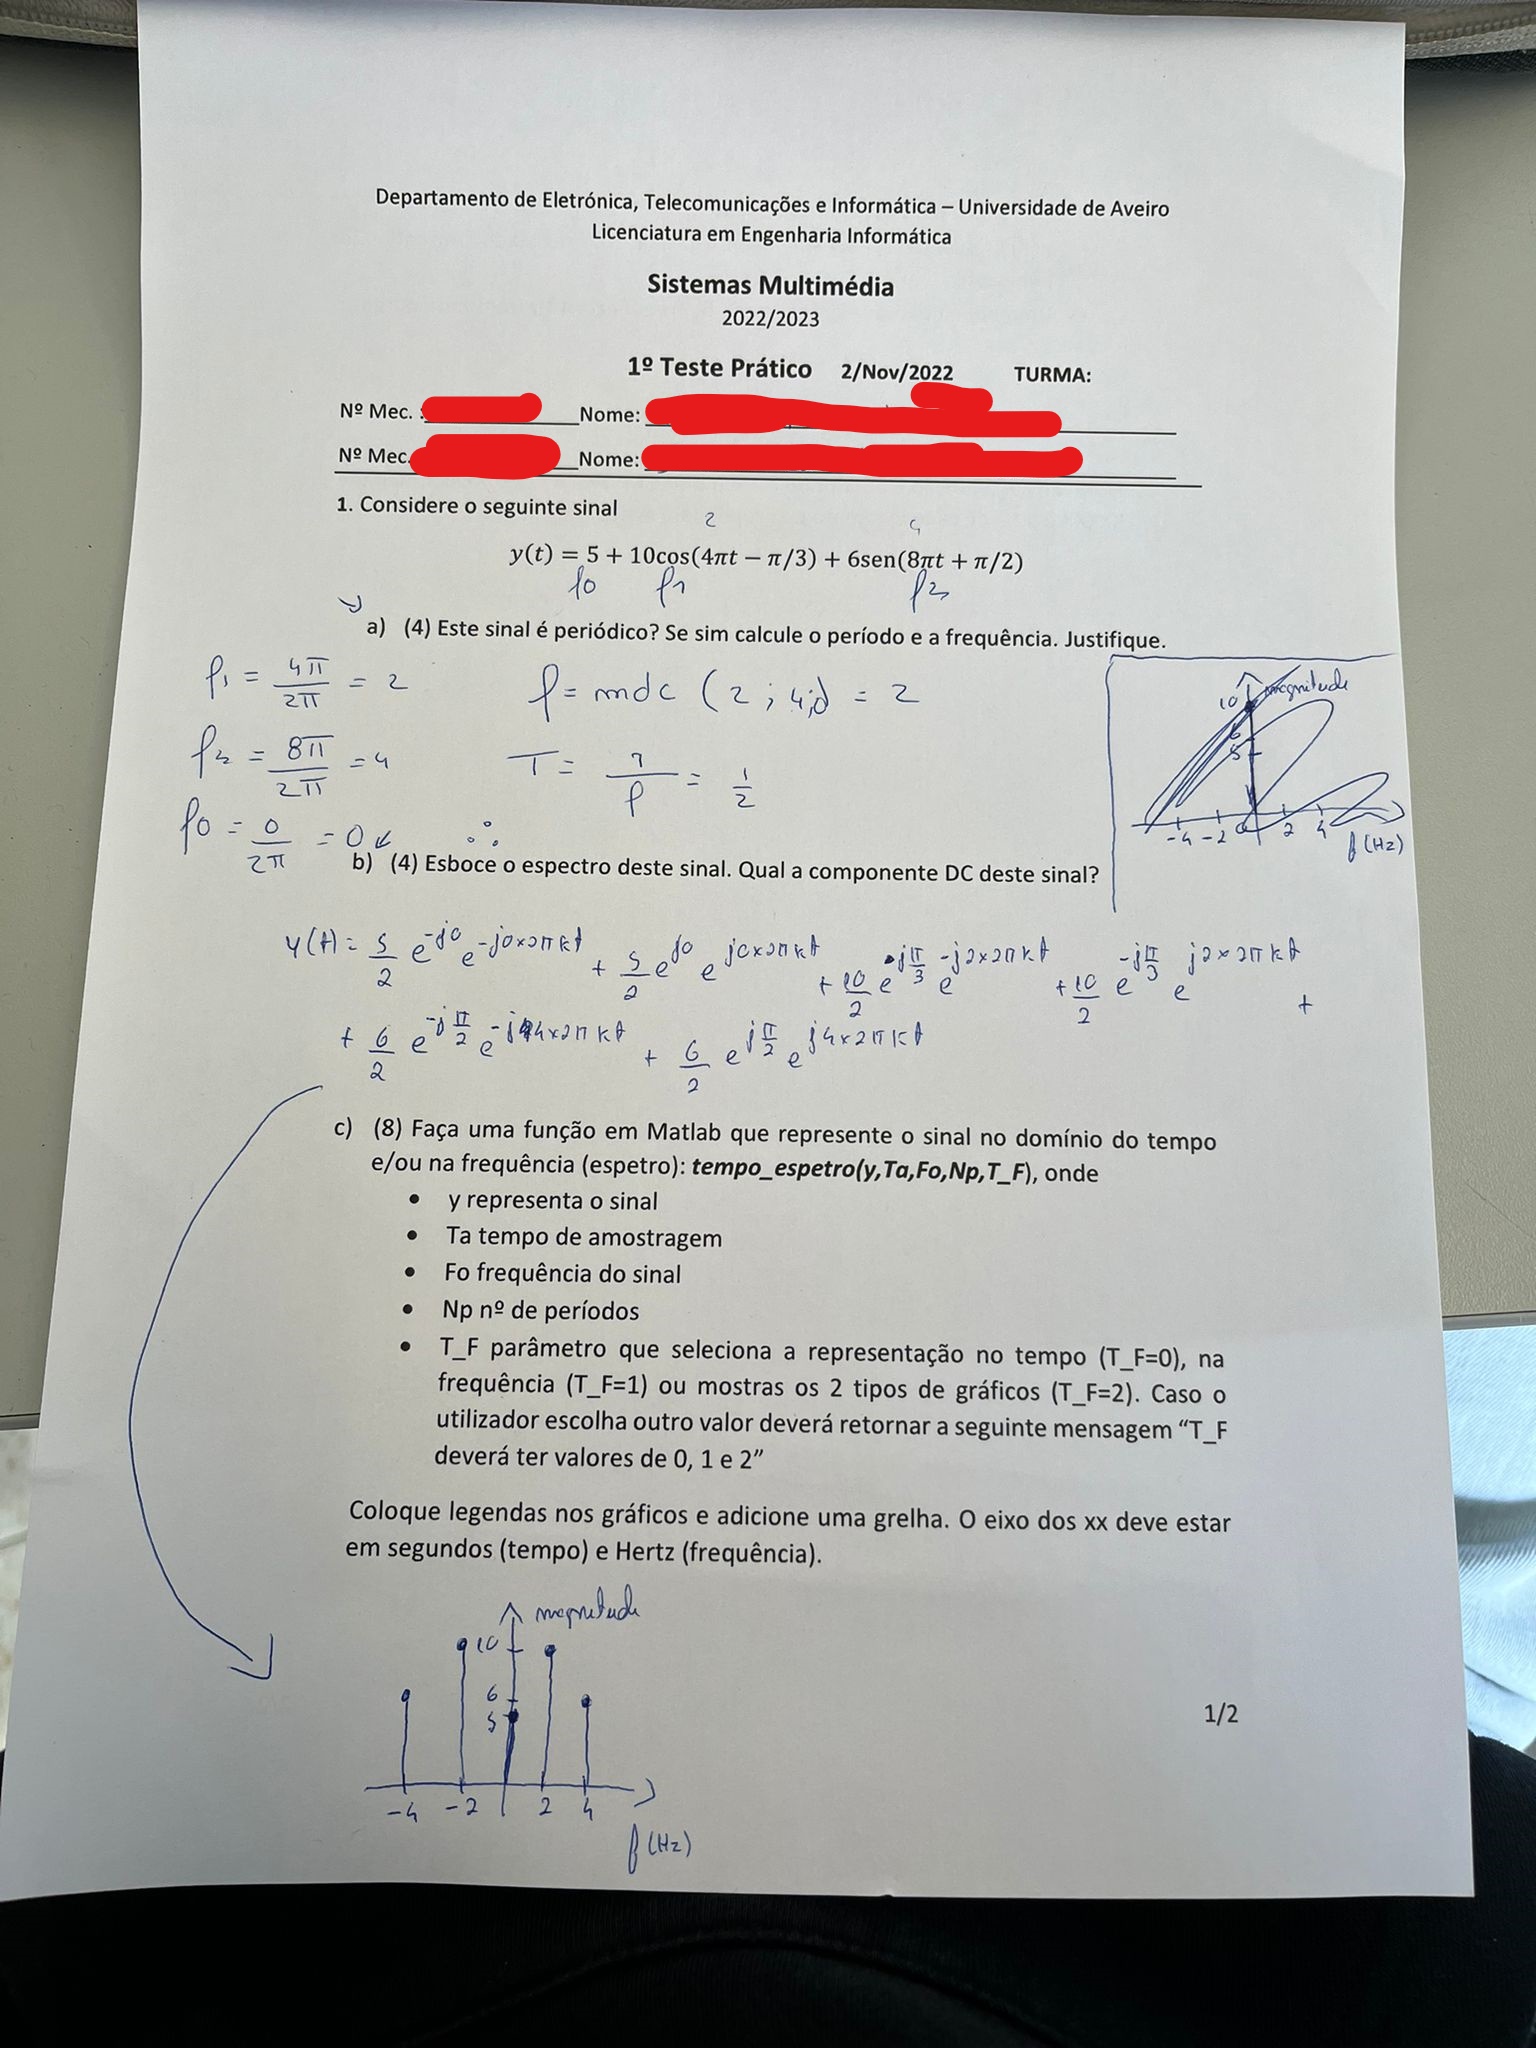 Departamento de Eletrónica, Telecomunicações e Informática – Universidade de Aveiro
Licenciatura em Engenharia Informática
Sistemas Multimédia
2022/2023
1º Teste Prático 2/Nov/2022 TURMA:
Nº Mec. : Nome:
Nº Mec. Nome:
1. Considere o seguinte sinal
2 4
y(t) = 5 + 10cos(4πt − π/3) + 6sen(8πt + π/2)
f0 f1 f2
a) (4) Este sinal é periódico? Se sim calcule o período e a frequência. Justifique.
f1 = 4π/2π = 2 f = mdc (2; 4) = 2
f2 = 8π/2π = 4 T = 1/f = 1/2
f0 = 0/2π = 0 ∴
magnitude
10
6
5
-4 -2 0 2 4
f (Hz)
b) (4) Esboce o espectro deste sinal. Qual a componente DC deste sinal?
y(t) = 5/2 e^-j0 e^-j0×2πkt + 5/2 e^j0 e^j0×2πkt + 10/2 e^jπ/3 e^-j2×2πkt + 10/2 e^-jπ/3 e^j2×2πkt +
+ 6/2 e^-jπ/2 e^-j4×2πkt + 6/2 e^jπ/2 e^j4×2πkt
c) (8) Faça uma função em Matlab que represente o sinal no domínio do tempo
e/ou na frequência (espetro): tempo_espetro(y,Ta,Fo,Np,T_F), onde
• y representa o sinal
• Ta tempo de amostragem
• Fo frequência do sinal
• Np nº de períodos
• T_F parâmetro que seleciona a representação no tempo (T_F=0), na
frequência (T_F=1) ou mostras os 2 tipos de gráficos (T_F=2). Caso o
utilizador escolha outro valor deverá retornar a seguinte mensagem “T_F
deverá ter valores de 0, 1 e 2”
Coloque legendas nos gráficos e adicione uma grelha. O eixo dos xx deve estar
em segundos (tempo) e Hertz (frequência).
magnitude
10
6
5
-4 -2 2 4
f (Hz)
1/2